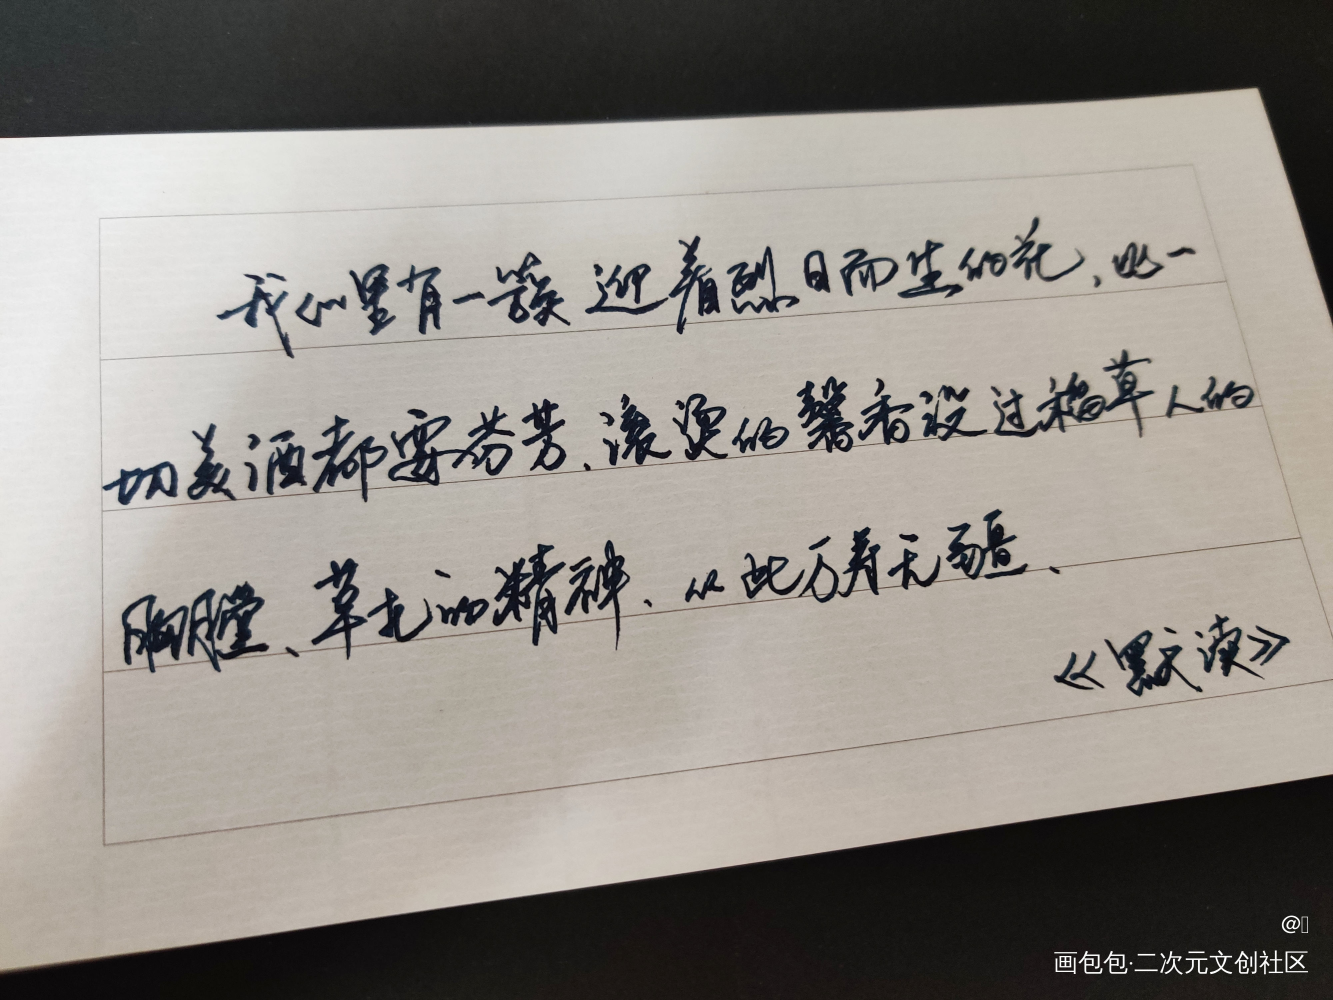 我们里有一簇迎着烈日而生的花、比一
切美酒都要芬芳、滚烫的馨香没过稻草人的
胸膛、草扎的精神、从此万寿无疆、
《默读》
@
画包包·二次元文创社区